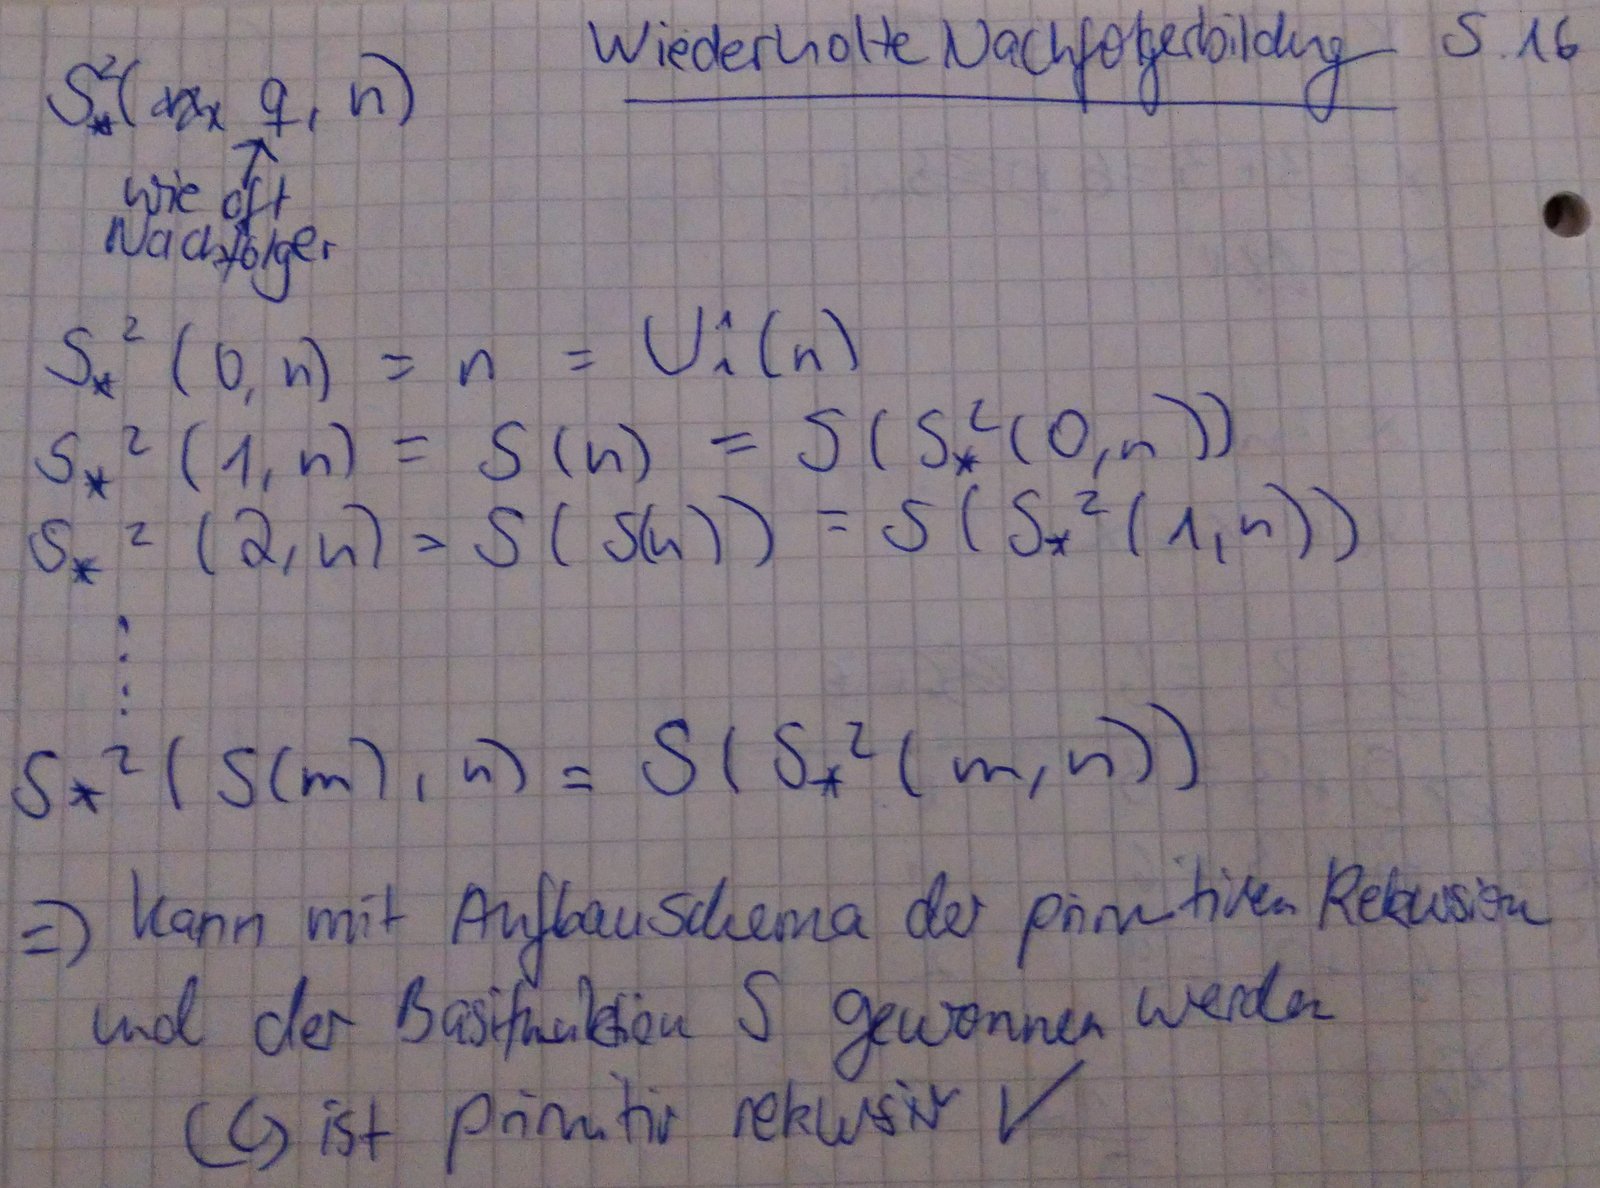 Wiederholte Nachfolgerbildung S. 16
S*²( q, n)
wie oft
Nachfolger
S*² (0, n) = n = U₁¹(n)
S*² (1, n) = S(n) = S(S*²(0, n))
S*² (2, n) = S(S(n)) = S(S*²(1, n))
⋮
S*² (S(m), n) = S(S*²(m, n))
=> kann mit Aufbauschema der primitiven Rekursion
und der Basisfunktion S gewonnen werden
ist primitiv rekursiv ✓